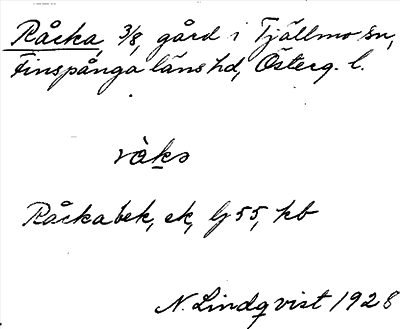 Råcka, 3/8, gård i Tjällmo sn,
Finspånga läns hd, Österg. l.
ràkа
Råckabek, ek, lj 55, kb
N. Lindqvist 1928